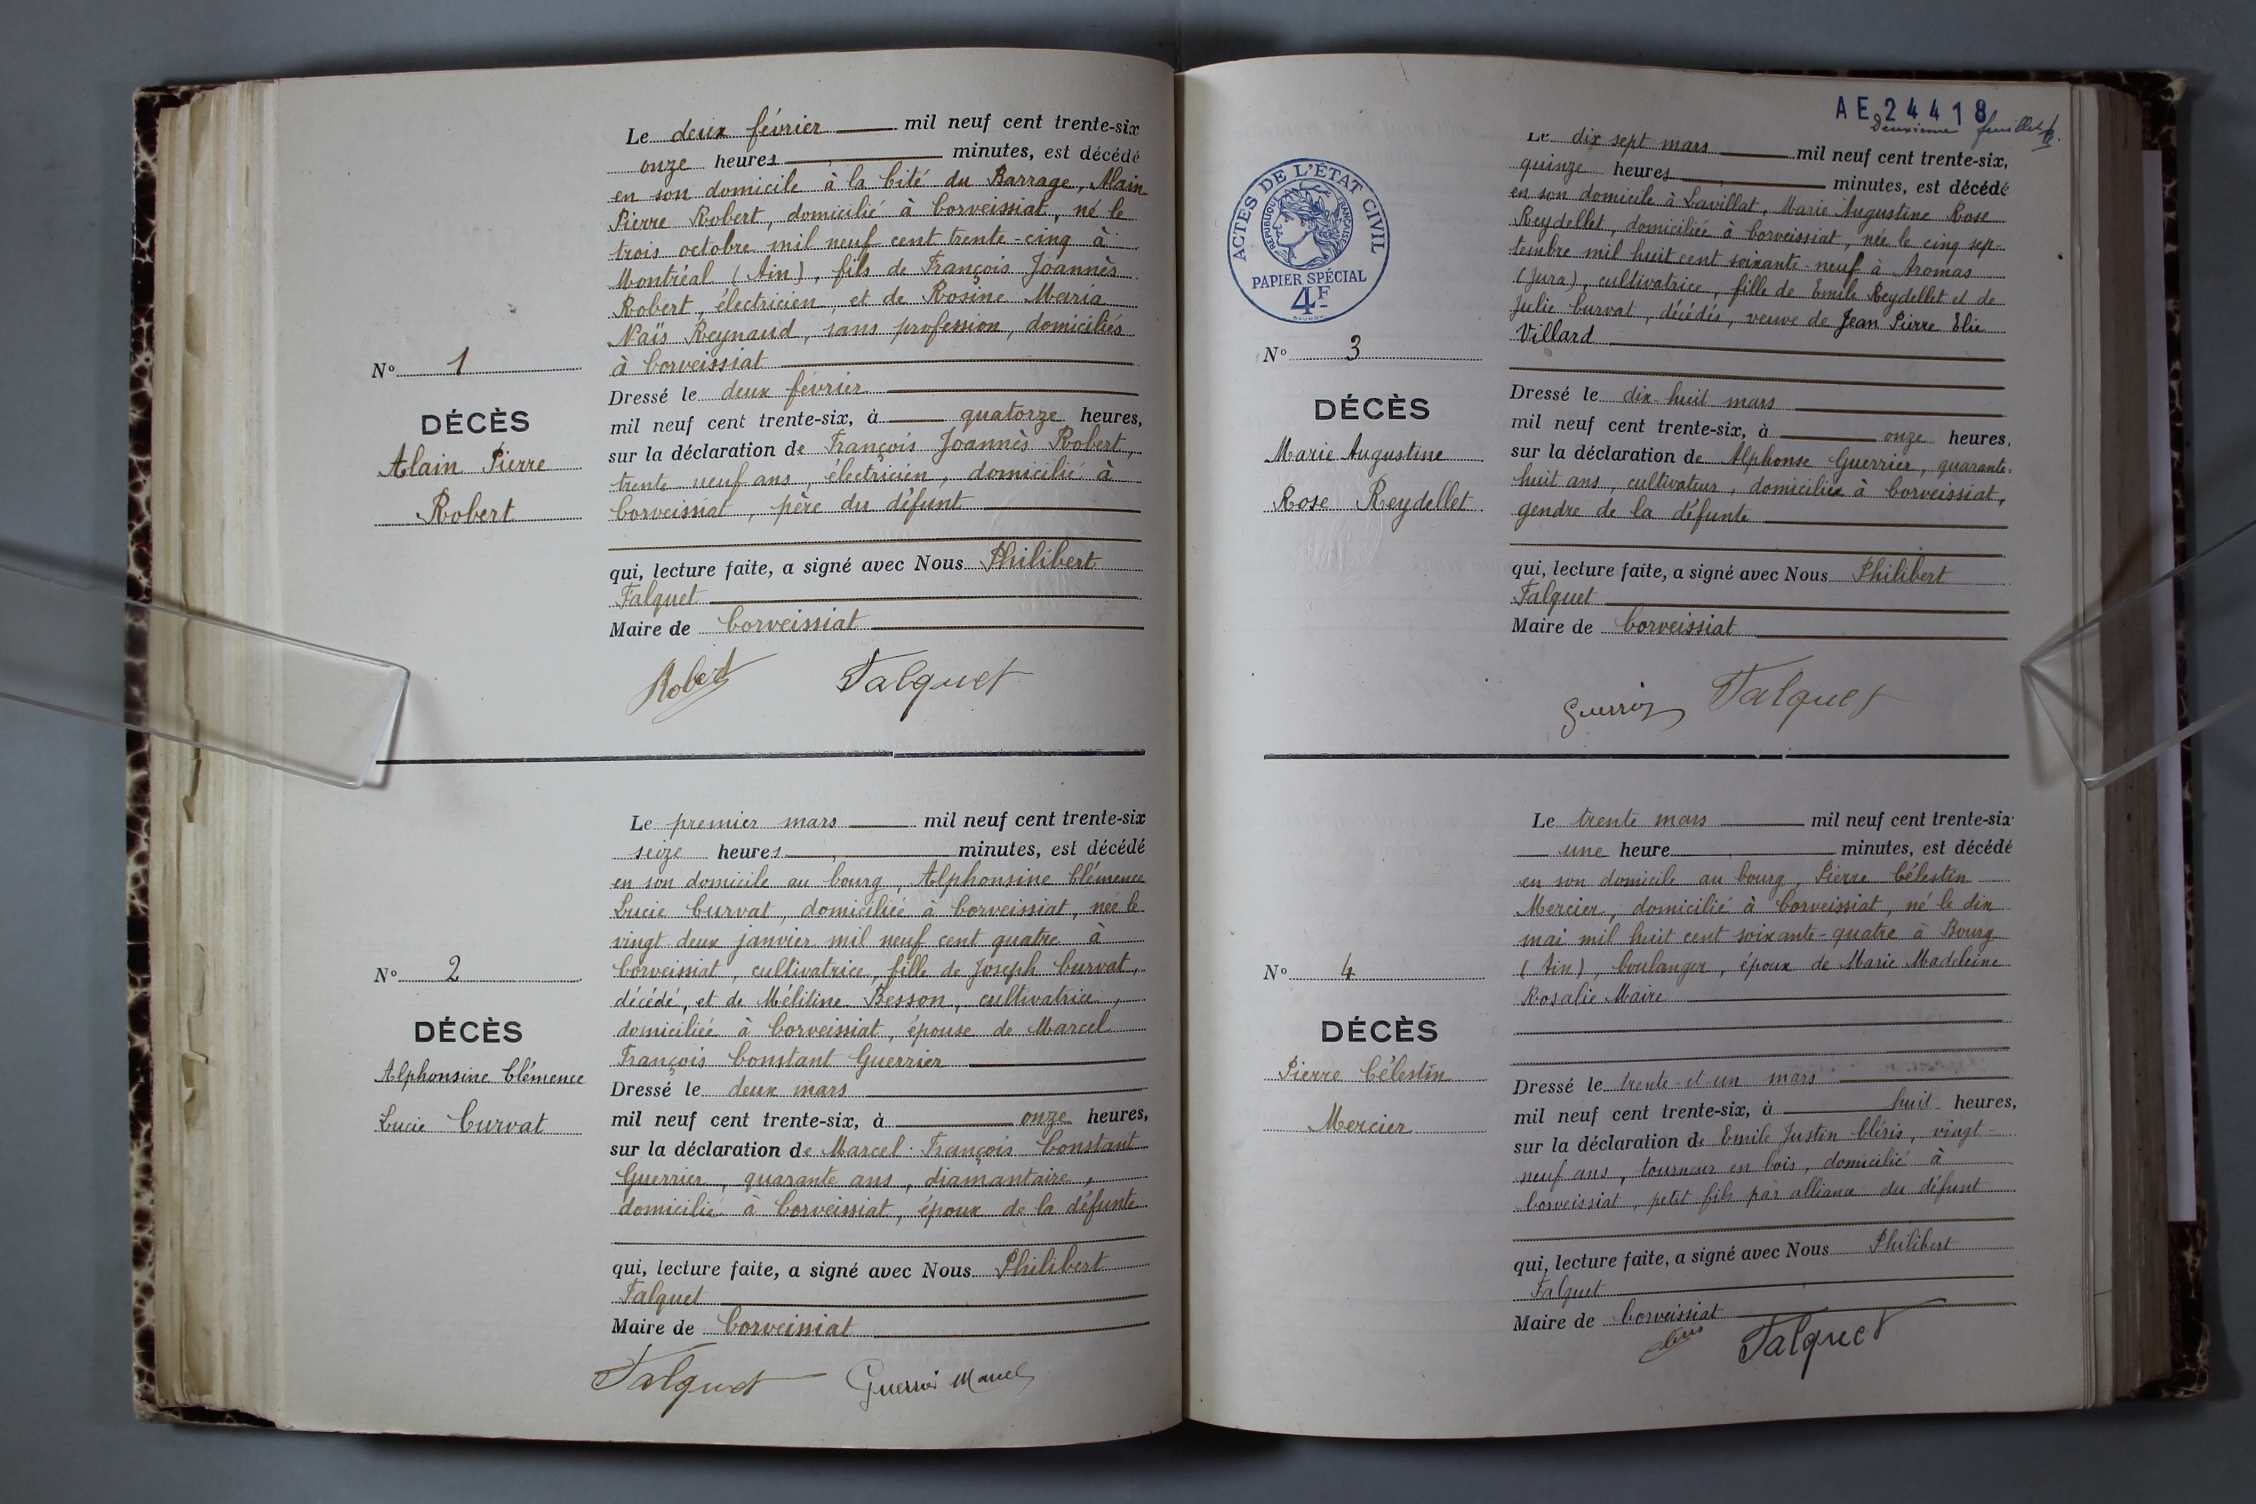 Le deux février mil neuf cent trente-six
onze heures minutes, est décédé
en son domicile à la Cité du Barrage, Alain
Pierre Robert, domicilié à Corveissiat, né le
trois octobre mil neuf cent trente-cinq à
Montréal (Ain), fils de François Joannès
Robert, électricien, et de Rosine Maria
Naïs Reynaud, sans profession, domiciliés
à Corveissiat
Nº 1
DÉCÈS
Alain Pierre
Robert
Dressé le deux février
mil neuf cent trente-six, à quatorze heures,
sur la déclaration de François Joannès Robert,
trente neuf ans, électricien, domicilié à
Corveissiat, père du défunt
qui, lecture faite, a signé avec Nous Philibert
Falquet
Maire de Corveissiat
Robert Falquet
Le premier mars mil neuf cent trente-six
seize heures minutes, est décédé
en son domicile au bourg, Alphonsine Clémence
Lucie Curvat, domiciliée à Corveissiat, née le
vingt deux janvier mil neuf cent quatre à
Corveissiat, cultivatrice, fille de Joseph Curvat,
décédé, et de Mélitine Besson, cultivatrice,
domiciliée à Corveissiat, épouse de Marcel
François Constant Guerrier
Nº 2
DÉCÈS
Alphonsine Clémence
Lucie Curvat
Dressé le deux mars
mil neuf cent trente-six, à onze heures,
sur la déclaration de Marcel François Constant
Guerrier, quarante ans, diamantaire,
domicilié à Corveissiat, époux de la défunte
qui, lecture faite, a signé avec Nous Philibert
Falquet
Maire de Corveissiat
Falquet Guerrier Marcel
AE 24418
Deuxième feuillet
ACTES DE L'ÉTAT CIVIL
RÉPUBLIQUE FRANÇAISE
PAPIER SPÉCIAL
4F
Le dix sept mars mil neuf cent trente-six,
quinze heures minutes, est décédé
en son domicile à Lavillat, Marie Augustine Rose
Reydellet, domiciliée à Corveissiat, née le cinq sep-
tembre mil huit cent soixante-neuf à Aromas
(Jura), cultivatrice, fille de Emile Reydellet et de
Julie Curvat, décédés, veuve de Jean Pierre Elie
Villard
Nº 3
DÉCÈS
Marie Augustine
Rose Reydellet
Dressé le dix-huit mars
mil neuf cent trente-six, à onze heures,
sur la déclaration de Alphonse Guerrier, quarante-
huit ans, cultivateur, domicilié à Corveissiat,
gendre de la défunte
qui, lecture faite, a signé avec Nous Philibert
Falquet
Maire de Corveissiat
Guerrier Falquet
Le trente mars mil neuf cent trente-six
une heure minutes, est décédé
en son domicile au bourg, Pierre Célestin
Mercier, domicilié à Corveissiat, né le dix
mai mil huit cent soixante-quatre à Bourg
(Ain), boulanger, époux de Marie Madeleine
Rosalie Maire
Nº 4
DÉCÈS
Pierre Célestin
Mercier
Dressé le trente-et-un mars
mil neuf cent trente-six, à huit heures,
sur la déclaration de Emile Justin Cléris, vingt-
neuf ans, tourneur en bois, domicilié à
Corveissiat, petit fils par alliance du défunt
qui, lecture faite, a signé avec Nous Philibert
Falquet
Maire de Corveissiat
Falquet